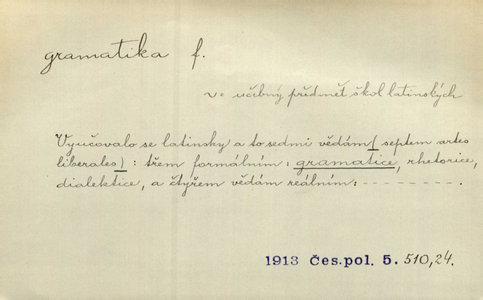 gramatika f.
ve učebný předmět škol latinských
Vyučovalo se latinsky a to sedmi vědám (septem artes
liberales) : třem formálním : gramatice, rhetorice,
dialektice, a čtyřem vědám reálním : - - - - - - - - .
1913 Čes. pol. 5. 510,24.